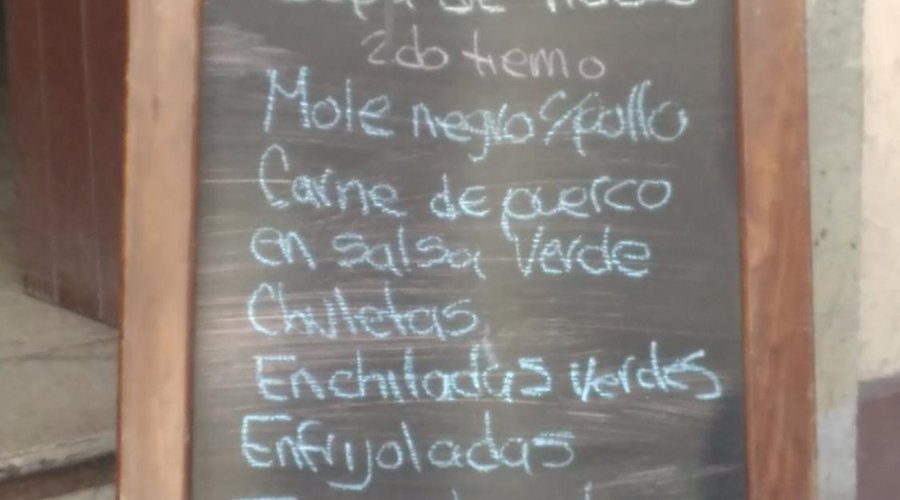 2do tiemo
Mole negro c/pollo
Carne de puerco
en salsa Verde
Chuletas
Enchiladas verdes
Enfrijoladas